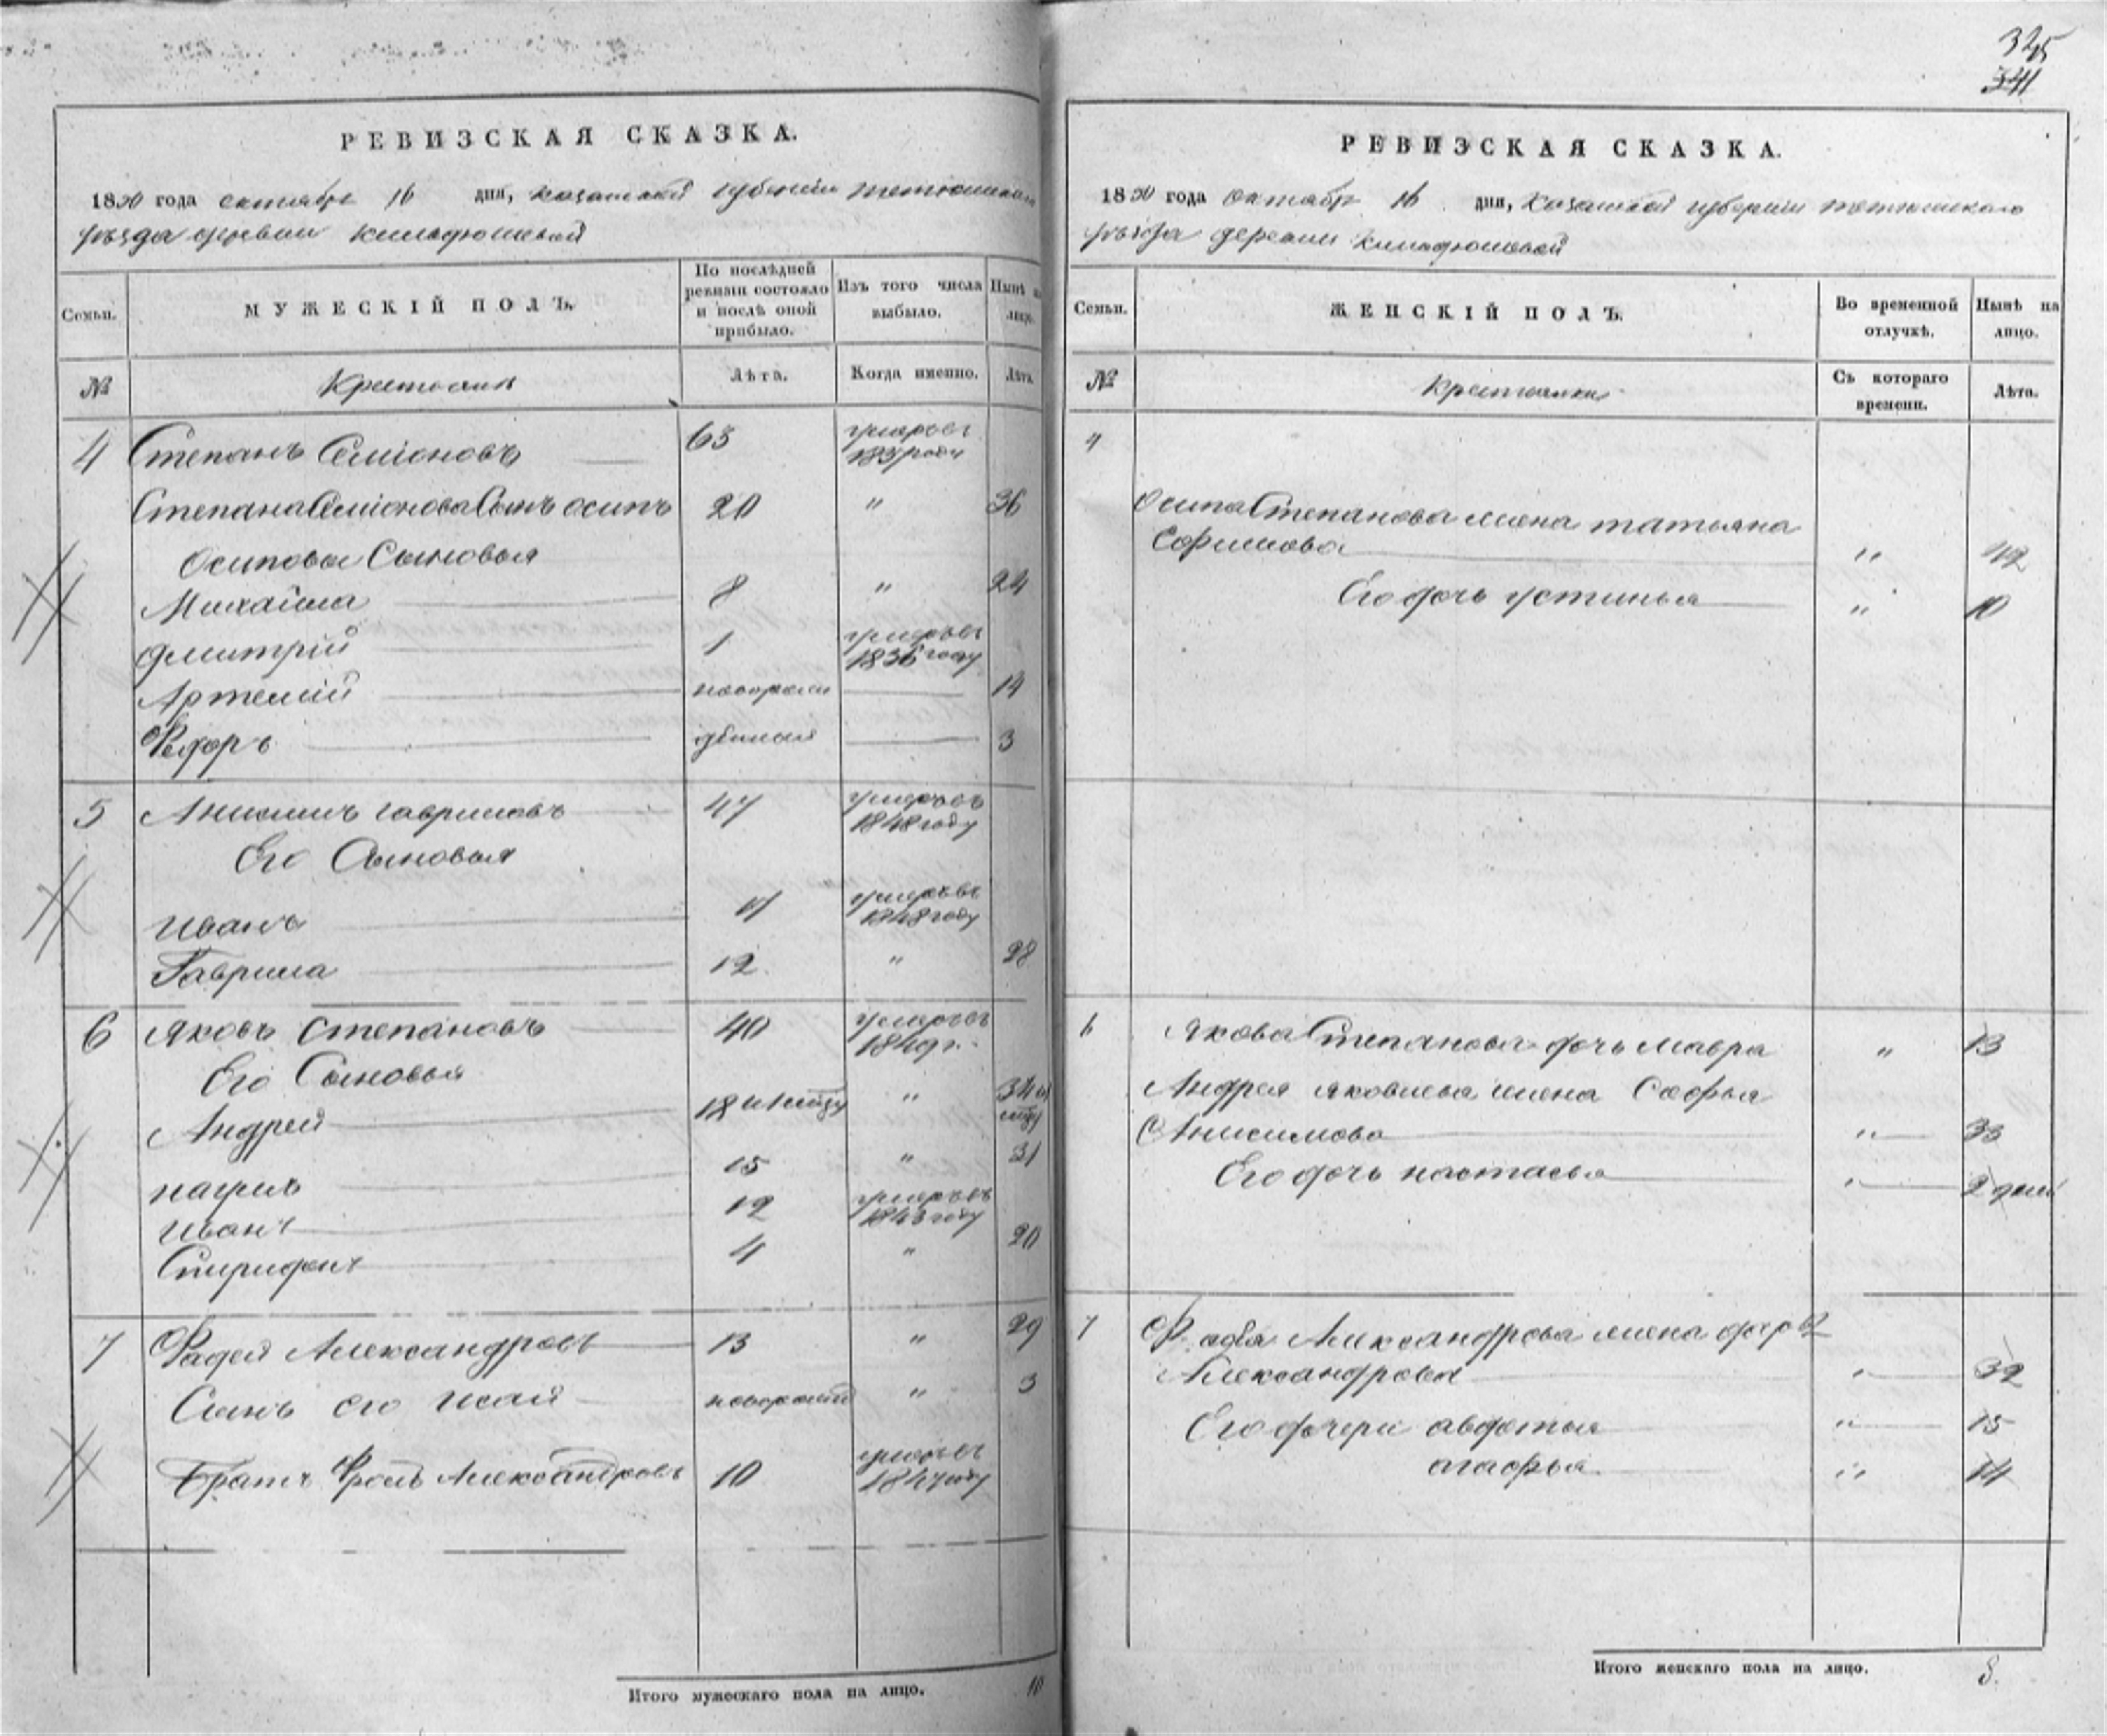 325
341
РЕВИЗСКАЯ СКАЗКА.
1850 года октября 16 дня, казанской губернии тетюшскаго
уѣзда деревни
Семьи.
МУЖЕСКІЙ ПОЛЪ.
По послѣдней
ревизіи состояло
и послѣ оной
прибыло.
Изъ того числа
выбыло.
Нынѣ на
лицо.
№
Крестьяне
Лѣта.
Когда именно.
Лѣта
4 Степанъ Семіоновъ 63 умеръ въ
году
Степана Семіонова Сынъ осипъ 20 " 36
Осиповы Сыновья
Михайла 8 " 24
дмитрій 1 умеръ въ
1836 году
Артемій новорожд 14
Ѳедоръ 3
5 Аникинъ гавриловъ 47 умеръ въ
1848 году
Его Сыновья
Иванъ умеръ въ
1848 году
Гаврила 12 " 28
6 яковъ степановъ 40 умеръ въ
184
Его Сыновья
Андрей 18 " 34
15 " 31
Иванъ 12 умеръ въ
1843 году
Спиридонъ 4 " 20
7 Фадей Александровъ 13 " 29
Сынъ его исай " 3
Братъ Фролъ Александровъ 10 умеръ въ
1847 году
Итого мужескаго пола на лицо. 10
РЕВИЗСКАЯ СКАЗКА.
1850 года октября 16 дня, казанской губерніи тетюшскаго
уѣзда деревни
Семьи.
ЖЕНСКІЙ ПОЛЪ.
Во временной
отлучкѣ.
Нынѣ на
лицо.
№
Крестьянки
Съ котораго
времени.
Лѣта.
4
осипа Степанова жена татьяна
Ефимова " 42
Его дочь устинья " 10
6 якова Степанова дочь мавра " 13
Андрея яковлева жена Софья
Анисимова " 33
Его дочь настасья " 2
7 Фадея Александрова жена
Александрова " 32
Его дочери авдотья " 15
агафья " 14
Итого женскаго пола на лицо. 8.